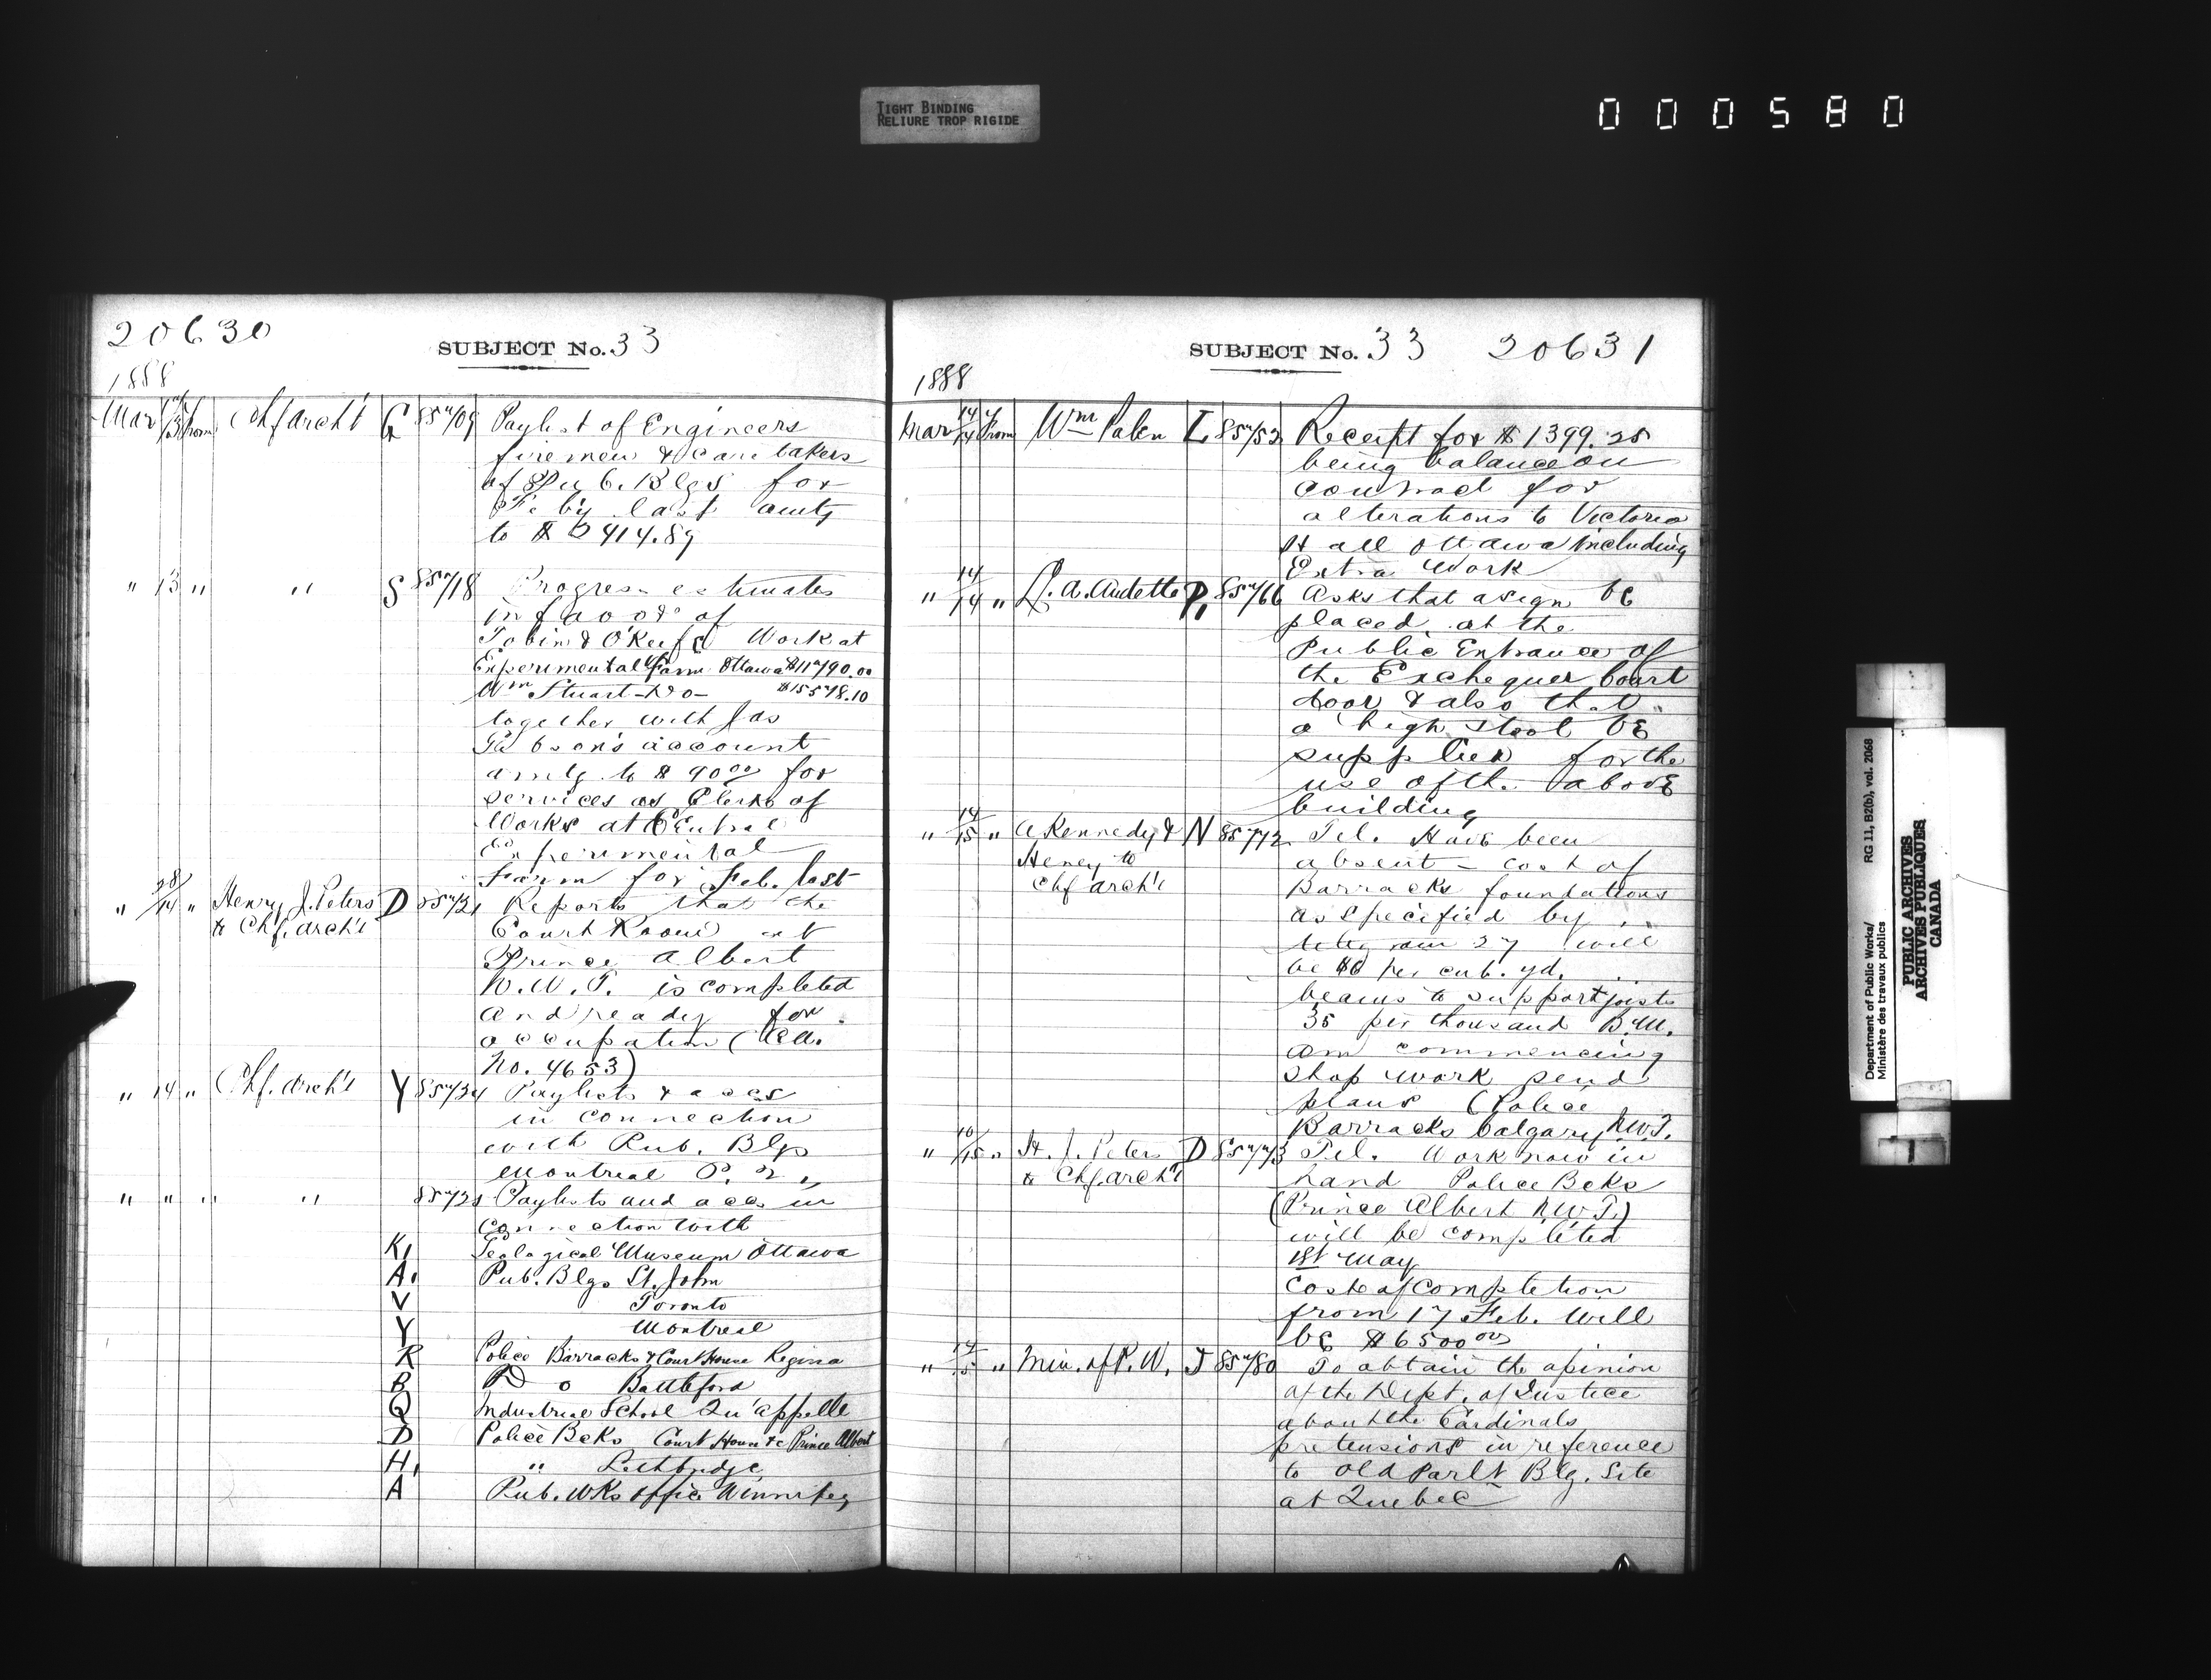 TIGHT BINDING
RELIURE TROP RIGIDE
000580
20630
SUBJECT No. 33
1888
Mar 13 From Chf Arch't G 85709 Paylist of Engineers
firemen & caretakers
of Pub. Blgs for
Feby last amtg
to $ 414.89
" 13 " " S 85718 Progress estimates
in favor of
Tobin & O'Keefe Work at
Experimental Farm Ottawa $11790.00
Wm Stuart - Do - $15578.10
together with Jas
account
amtg to $ 90 00 for
services as Clerk of
Works at Central
Experimental
Farm for Feb. last
" 28/14 " Henry J. Peters D 85721 Reports that the
to Chf. Arch't
Court Room at
Prince Albert
N.W.T. is completed
and ready for
occupation (
No. 4653)
" 14 " Chf. Arch't Y 85724 Paylists & accs
in connection
with Pub. Blgs
Montreal P. Q.
" " " " 8572 Paylists and accs in
connection with
K, Geological Museum Ottawa
A, Pub. Blgs St. John
V Toronto
Y Montreal
R Police Barracks & Court House Regina
B Do Battleford
Q Industrial School Qu'appelle
D Police Bcks Court House &c Prince Albert
H, " Lethbridge
A Pub. Wks Office Winnipeg
SUBJECT No. 33 20631
1888
Mar 14/14 From Wm Palen L 85752 Receipt for $ 1399.25
being balance on
contract for
alterations to Victoria
Hall Ottawa including
Extra Work
" 14/14 " L. A. Audette P, 85766 Asks that a sign be
placed at the
Public Entrance of
the Exchequer Court
door & also that
a high stool be
supplied for the
use of the above
building
" 14/15 " A Kennedy & N 85772 Tel. Have been
Heney to
absent - cost of
Chf Arch't
Barracks foundations
as specified by
telegram 27 will
be $6 per cub. yd.
beams to support joists
35 per thousand B.M.
am commencing
shop work pend
plans (Police
Barracks Calgary N.W.T.
" 10/15 " H. J. Peters D 85773 Tel. Work now in
to Chf. Arch't
hand Police Bcks
(Prince Albert N.W.T.)
will be completed
1st May
Cost of completion
from 17 Feb. will
be $6500 00
" 14/15 " Min. of P. W. J 85780 To obtain the opinion
of the Dept. of Justice
about the Cardinals
pretensions in reference
to Old Parlt Blg. Site
at Quebec
Department of Public Works/
Ministère des travaux publics
RG 11, B2(b), vol. 2068
PUBLIC ARCHIVES
ARCHIVES PUBLIQUES
CANADA